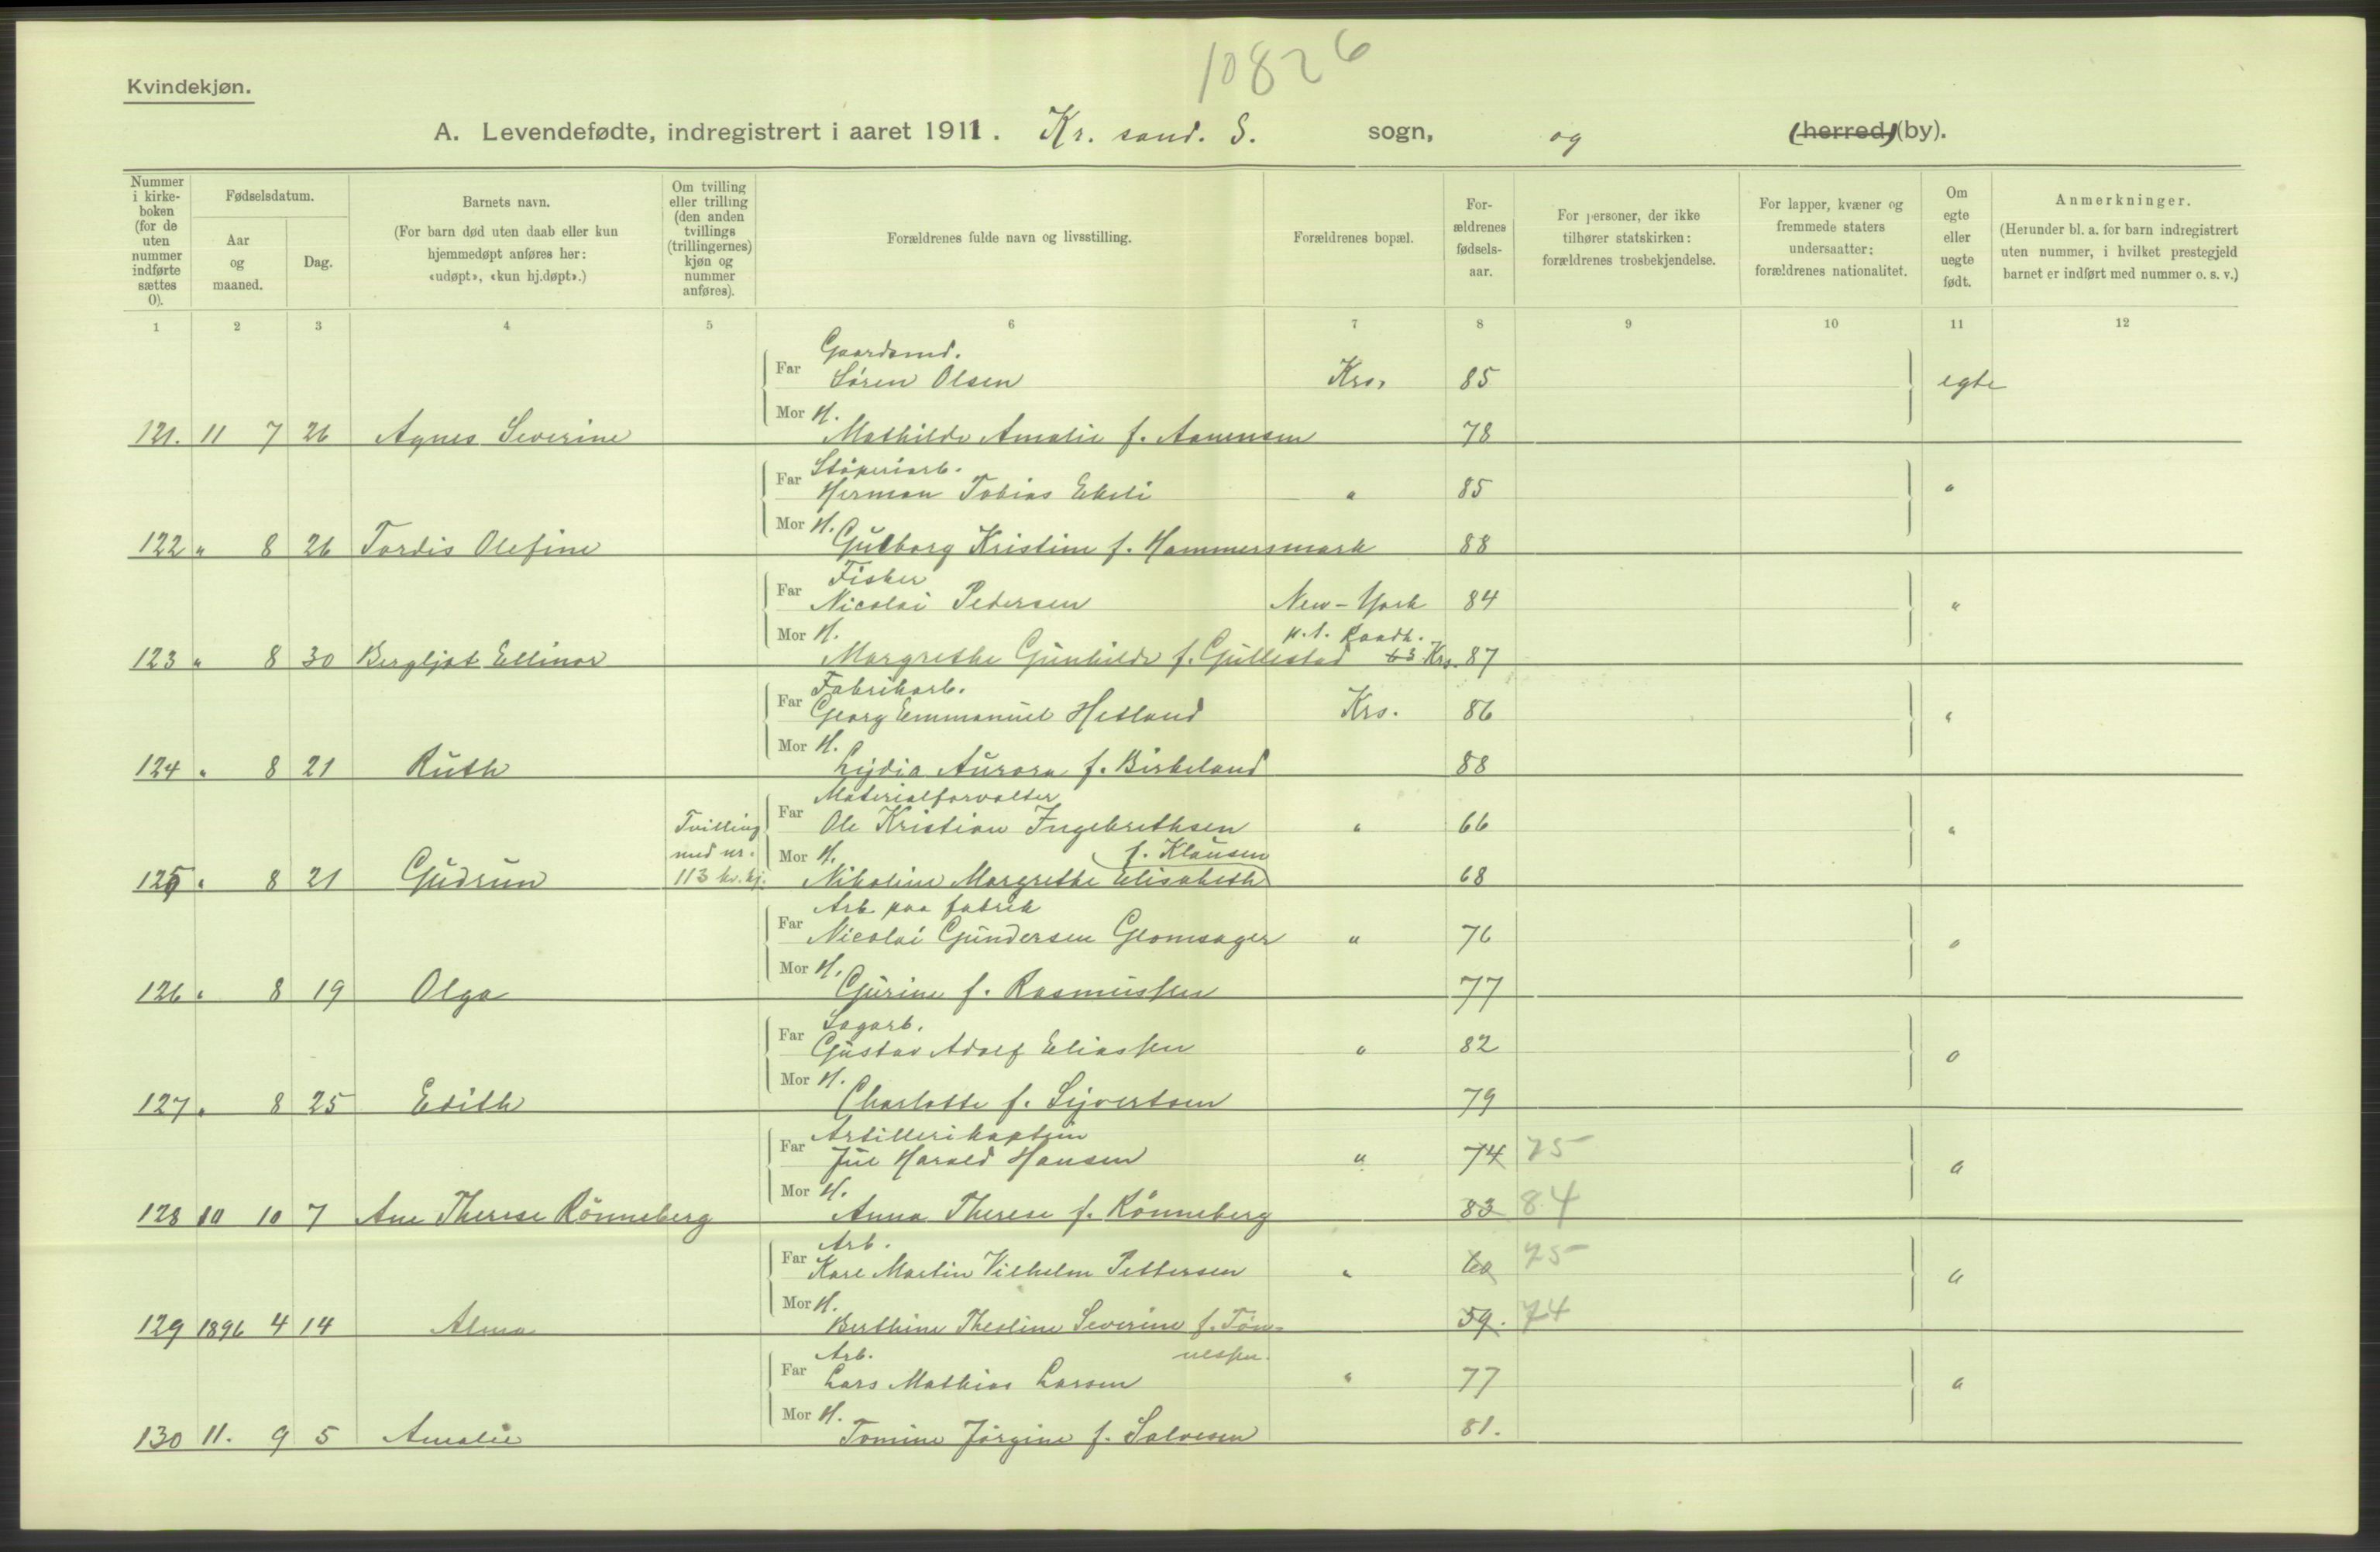 10826
Kvindekjøn.
A. Levendefødte, indregistrert i aaret 1911. Kr. sand. S. sogn, og (herred) (by).
Nummer i kirke-boken (for de uten nummer indførte sættes 0).
Fødselsdatum.
Aar og maaned.
Dag.
Barnets navn.
(For barn død uten daab eller kun hjemmedøpt anføres her: «udøpt», «kun hj.døpt».)
Om tvilling eller trilling (den anden tvillings (trillingernes) kjøn og nummer anføres).
Forældrenes fulde navn og livsstilling.
Forældrenes bopæl.
For-ældrenes fødsels-aar.
For personer, der ikke tilhører statskirken: forældrenes trosbekjendelse.
For lapper, kvæner og fremmede staters undersaatter: forældrenes nationalitet.
Om egte eller uegte født.
Anmerkninger.
(Herunder bl. a. for barn indregistrert uten nummer, i hvilket prestegjeld barnet er indført med nummer o. s. v.)
1 2 3 4 5 6 7 8 9 10 11 12
Gaardsmd.
Far Søren Olsen Krs. 85 egte
Mor H.
121. 11 7 26 Agnes Severine Mathilde Amalie f. Aanensen 78
Støperiarb.
Far Herman Tobias Ekeli " 85 "
Mor H.
122 " 8 26 Tordis Olefine Gulborg Kristine f. Hammersmark 88
Fisker
Far Nicolai Pedersen New-York 84 "
Mor H. p.t. Raadh.
123 " 8 30 Bergljot Ellinor Margrethe Gunhilde f. Gullestad 63 Krs. 87
Fabrikarb.
Far Georg Emmanuel Hetland Krs. 86 "
Mor H.
124 " 8 21 Ruth Lydia Aurora f. Birkeland 88
Materialforvalter
Tvilling Far Ole Kristian Ingebrethsen " 66 "
med nr. Mor H. f. Klausen
125 " 8 21 Gudrun 113 kv.kj. Nikoline Margrethe Elisabeth 68
Arb. paa fabrik
Far Nicolai Gundersen Glomsager " 76 "
Mor H.
126 " 8 19 Olga Gurine f. Rasmussen 77
Sagarb.
Far Gustav Adolf Eliassen " 82 "
Mor H.
127 " 8 25 Edith Charlotte f. Syvertsen 79
Artillerikaptein
Far Jul Harald Hansen " 74 75 "
Mor H.
128 10 10 7 Ane Therese Rönneberg Anna Therese f. Rönneberg 83 84
Arb.
Far Karl Martin Vilhelm Pettersen " 60 75 "
Mor H.
129 1896 4 14 Alma Berthine Thesline Severine f. Tøn- 59. 74
Arb. nessen.
Far Lars Mathias Larsen " 77 "
Mor H.
130 11. 9 5 Amalie Tomine Jørgine f. Salvesen 81.